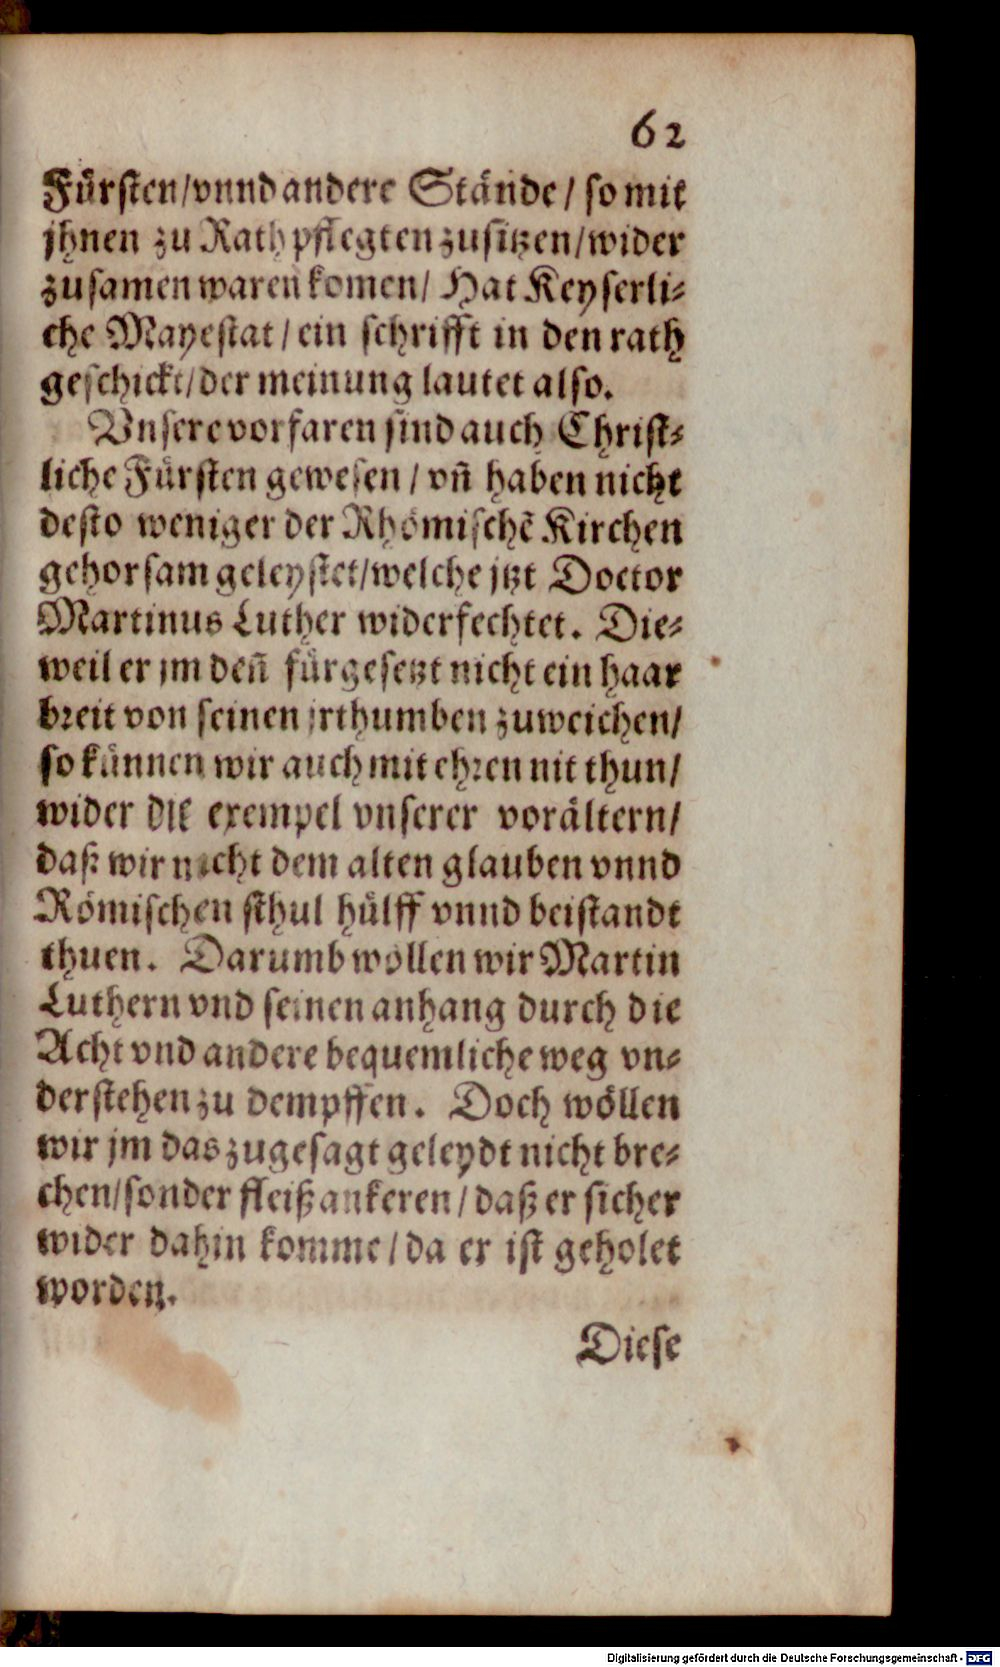 62
Fürsten/vnnd andere Stände/ so mit
jhnen zu Rath pflegten zusitzen/wider
zusamen waren komen/ Hat Keyserli⸗
che Mayestat/ein schrifft in den rath
geschickt/der meinung lautet also.
Vnsere vorfaren sind auch Christ⸗
liche Fürsten gewesen/ vñ haben nicht
desto weniger der Rhömischẽ Kirchen
gehorsam geleystet/welche jtzt Doctor
Martinus Luther widerfechtet. Die⸗
weil er jm deñ fürgesetzt nicht ein haar
breit von seinen jrthumben zuweichen/
so künnen wir auch mit ehren nit thun/
wider die exempel vnserer vorältern/
daß wir nicht dem alten glauben vnnd
Römischen sthul hülff vnnd beistandt
thuen. Darumb wöllen wir Martin
Luthern vnd seinen anhang durch die
Acht vnd andere bequemliche weg vn⸗
derstehen zu dempffen. Doch wöllen
wir jm das zugesagt geleydt nicht bre⸗
chen/sonder fleiß ankeren/daß er sicher
wider dahin komme/da er ist geholet
worden.
Diese
Digitalisierung gefördert durch die Deutsche Forschungsgemeinschaft - DFG